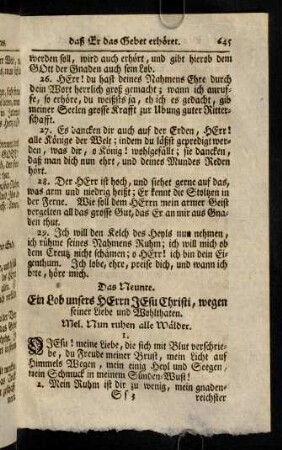 daß Er das Gebet erhöret. 645
werden soll, wird auch erhört, und gibt hierob dem
GOtt der Gnaden auch sein Lob.
26. HErr! du hast deines Nahmens Ehre durch
dein Wort herrlich groß gemacht; wann ich anruf-
fe, so erhöre, du weissts ja, eh ich es gedacht, gib
meiner Seelen grosse Krafft zur Ubung guter Ritter-
schafft.
27. Es dancken dir auch auf der Erden, HErr!
alle Könige der Welt; indem du lässst gepredigt wer-
den, was dir, o König! wohlgefällt; sie dancken,
daß man dich nun ehrt, und deines Mundes Reden
hört.
28. Der HErr ist hoch, und siehet gerne auf das,
was arm und niedrig heist; Er kennt die Stoltzen in
der Ferne. Wie soll dem HErrn mein armer Geist
vergelten all das grosse Gut, das Er an mir aus Gna-
den thut.
29. Ich will den Kelch des Heyls nun nehmen,
ich rühme seines Nahmens Ruhm; ich will mich ob
dem Creutz nicht schämen; o HErr! ich bin dein Ei-
genthum. Ich lobe, ehre, preise dich, und wann ich
bete, höre mich.
Das Neunte.
Ein Lob unsers HErrn JEsu Christi, wegen
seiner Liebe und Wohlthaten.
Mel. Nun ruhen alle Wälder.
1.
OJEsu! meine Liebe, die sich mit Blut verschrie-
be, du Freude meiner Brust, mein Licht auf
Himmels Wegen, mein einig Heyl und Seegen,
mein Schmuck in meinem Sünden-Wust!
2. Mein Ruhm ist dir zu wenig, mein gnaden-
S s 3 reichster